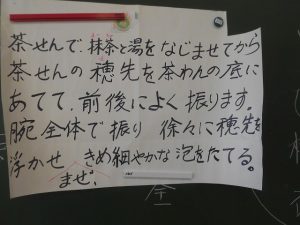 茶せんで、抹茶と湯をなじませてから
茶せんの穂先を茶わんの底に
あてて、前後によく振ります。
腕全体で振り 徐々に穂先を
浮かせ きめ細やかな泡をたてる。
まぜ、
全